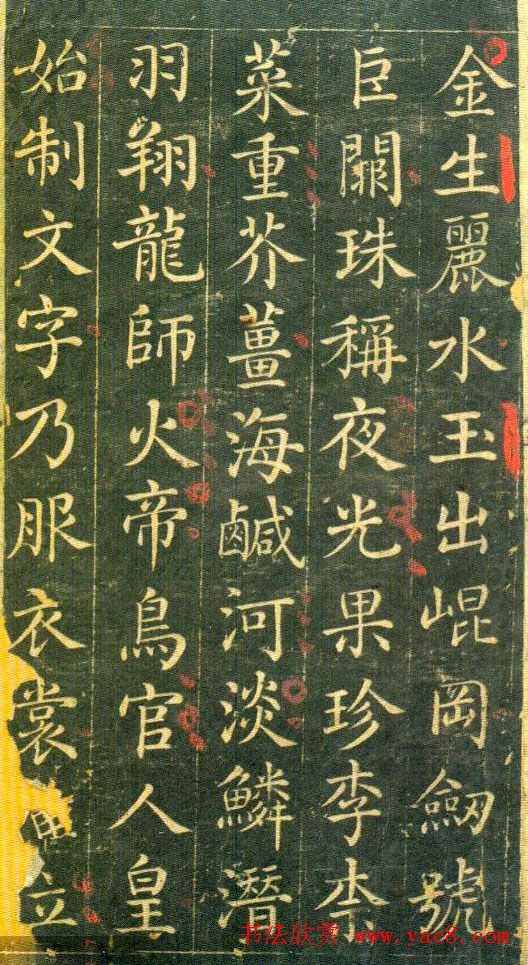 金生麗水玉出崐岡劒號
巨闕珠稱夜光果珍李柰
菜重芥薑海鹹河淡鱗潛
羽翔龍師火帝鳥官人皇
始制文字乃服衣裳
书法欣赏 www.yac8.com